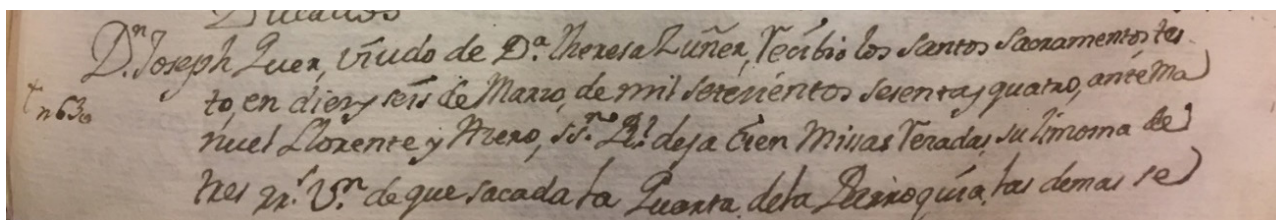 Ducados
Dn. Joseph Quer, Viudo de Da. Theresa Zuñer, recibio los Santos Sacramentos tes
tn63o to, en diez y seis de Marzo, de mil setezientos sesenta y quatro, ante Ma
nuel Llorente y Mero, ssno Rl. deja Cien Missas Rezadas, su limosna de
tres rrs. Vn. de que sacada la Quarta dela Parroquia, las demas se